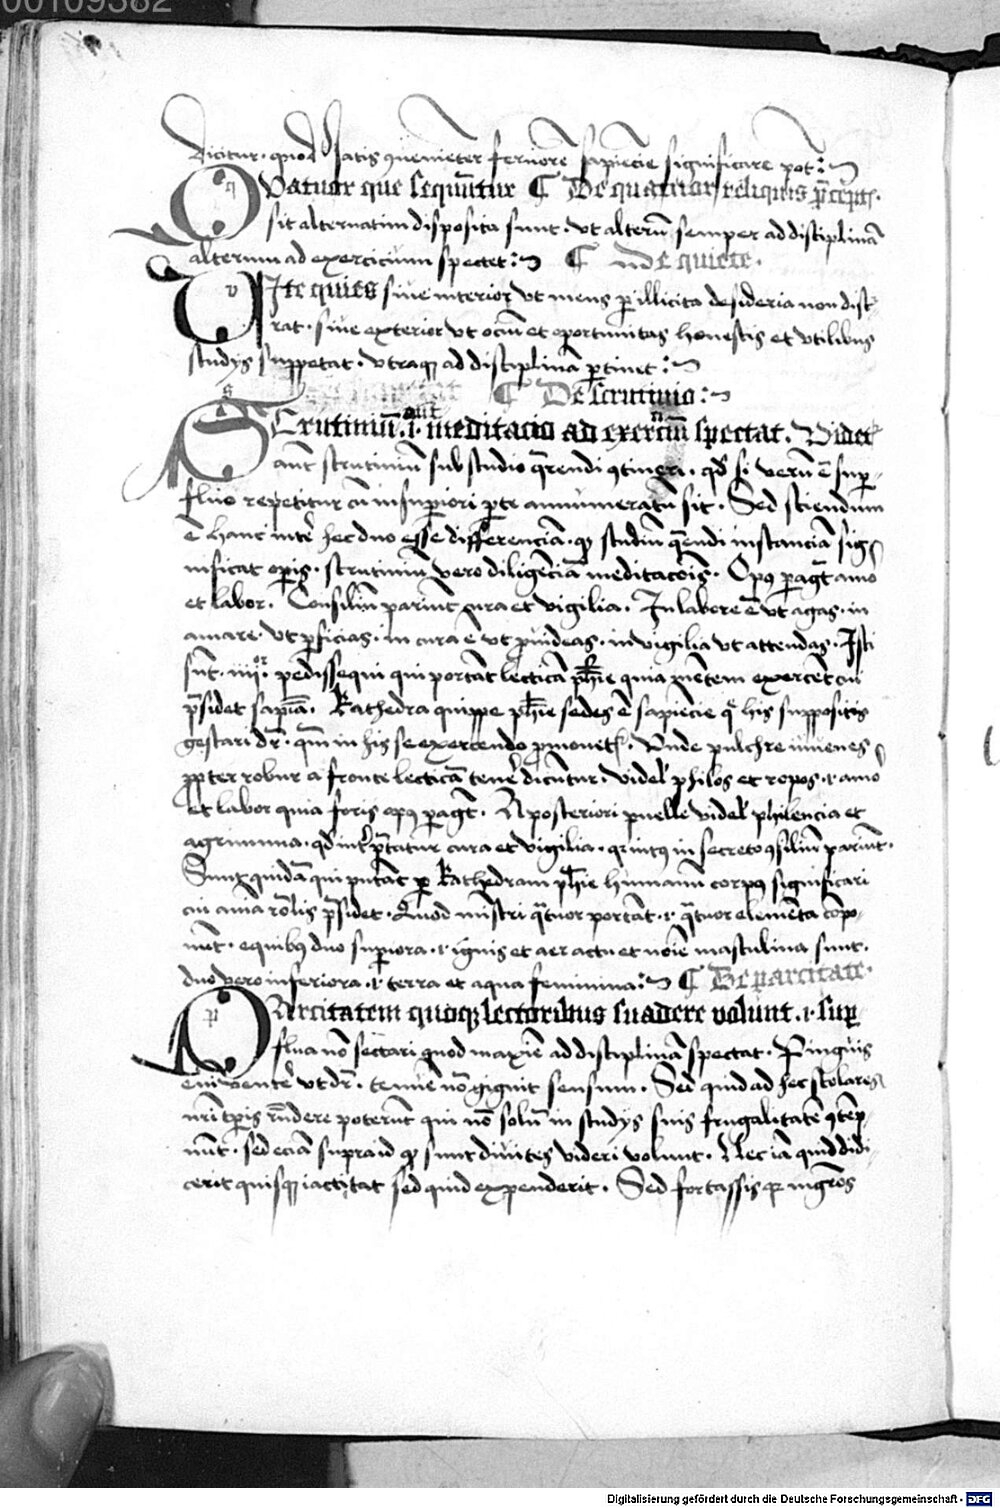 00109382
dicitur. quod satis ꝯuenienter feruorē sapiēcie significare pot̄:
QVatuor que sequūtur ¶ De quatuor reliquis p̄ceptis.
sic alternatim disposita sunt. vt alterū semper ad disciplinā
alterum ad exercicium spectet: ¶ De quiete.
VIte quies siue interior vt mens ꝑ illicita desideria non dist
rat. siue exterior vt ociū et oportunitas honestis et vtilibus
studys suppetat. vtraqꝫ ad disciplinā ꝑtinet:
¶ De scrutinio:
SCrutiniū aūt .i. meditacio ad exerciū spectat. Videt̄
aūt scrutiniū sub studio q̄rendi ꝯtineri. qd̄ si verū ē suꝑ
fluo repetitur cū in suꝑiori ꝑte annumeratū sit. Sed sciendum
ē hanc inter hec duo esse differenciā. qꝫ studiū q̄rendi instanciā sig
nificat oꝑis. scrutiniū vero diligēciā meditacōis. Opꝰ ꝑagūt amor
et labor. Consiliū pariūt cura et vigilia. In labore ē vt agas. in
amore. vt ꝑficias. in cura ē vt ꝓuideas. in vigilia vt attendas. Isti
sūt .iiiiᵒʳ. pedissequi qui portāt lecticā ph̄ie quia mētem exercēt cui
p̄sidet sapīa. Kathedra quippe ph̄ie sedes ē sapiēcie q̄ his suppositis
gestari dr̄. qm̄ in his se exercendo ꝓmouet̄. Vnde pulchre iuuenes
ꝓpter robur a fronte lecticā tenē dicūtur. videlꝫ philos et ropos .i. amor
et labor quia foris opꝰ ꝑagūt. A posteriori puelle videlꝫ philencia et
agrimina. qd̄ int̄ꝑtātur cura et vigilia. qꝛ intꝰ in secreto ꝯsiliū pariūt.
Sunt quidā qui putāt ꝑ Kathedram ph̄ie humanū corpꝰ significari
cui aīa rōlis p̄sidet. Quod mīstri q̄tuor portāt .i. q̄tuor elemēta cōpo
nūt. e quibꝰ duo suꝑiora .i. ignis et aer actu et noīe masculina sunt.
duo vero inferiora .i. terra et aqua feminina: ¶ De parcitate.
PArcitatem quoqꝫ lectoribus suadere volunt .i. suꝑ
flua nō sectari quod maxiē ad disciplinā spectat. Pinguis
enī venter vt dr̄. tenuē nō gignit sensum. Sed quid ad hec scolares
nr̄i tꝑis rn̄dere poterūt qui nō solū in studys suis frugalitatē ꝯtēp
nūt. sed eciā supra id qꝫ sunt diuites videri volunt. Nec iā quid didi
cerit quisqꝫ iactitat sed quid expenderit. Sed fortassis qꝛ mgr̄os
Digitalisierung gefördert durch die Deutsche Forschungsgemeinschaft - DFG